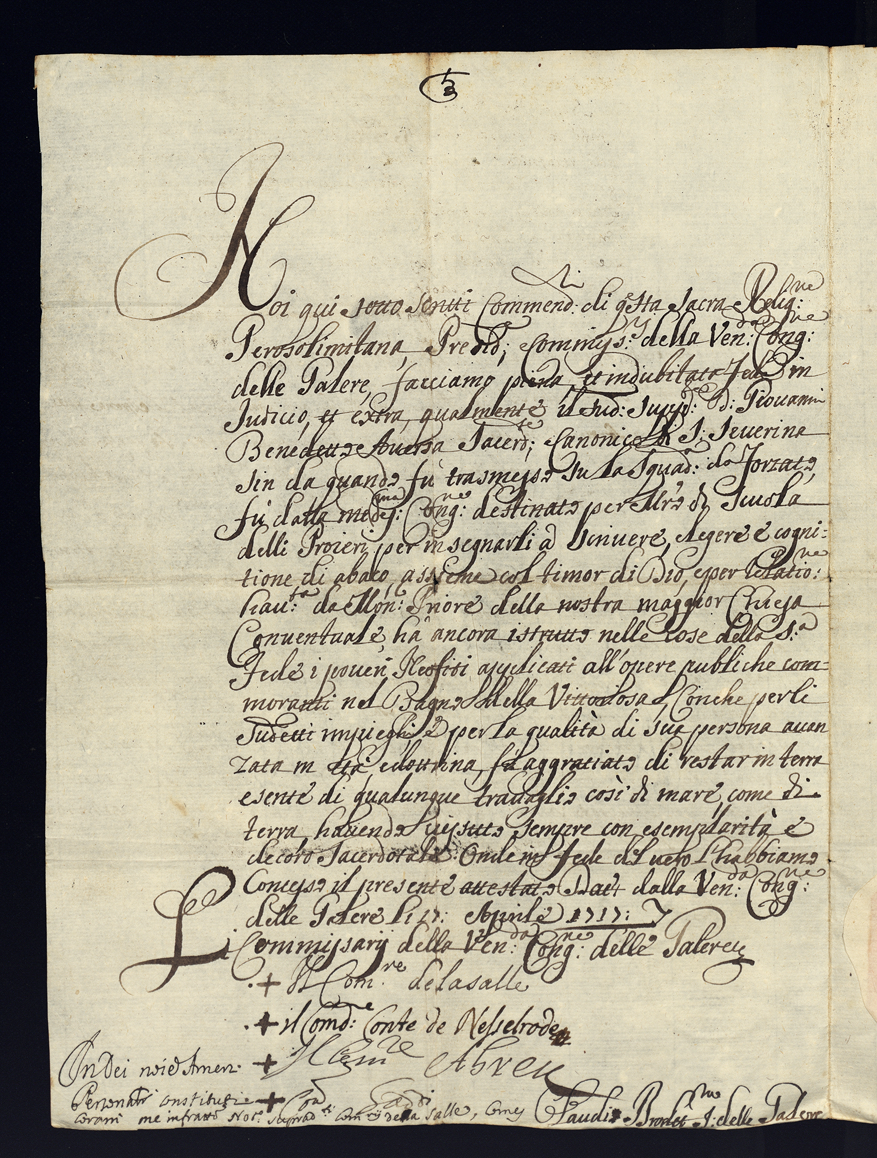 Noi qui sotto scritti Commend:ri di q.sta Sacra Relig:ne
Gerosolimitana, Commiss:ry della Ven:da Cong:ne
delle Galere, facciamo piena, et indubitata fede in
Judicio, et extra, qualmente il sud: D: Giovanni
Benedetto Aversa Sacerd:te, Canonico di S: Severina
sin da quando fù trasmesso su la Squad:a da forzato,
fù dalla medes:ma Cong:ne destinato per Mro di Scuola
delli Proieri, per insegnarli à scrivere, e legere e cogni-
tione di abaco, assieme col timor di Dio, e per
hav:ta da Mon: Priore della nostra maggior Chiesa
Conventuale, hà ancora istrutto nelle cose della S:a
Fede i poveri Neofiti applicati all'opere publiche com-
moranti nel Bagno della Vittoriosa, Conche per li
sudetti impieghi e per la qualità di sua persona avan
zata in età, e dottrina, fù aggratiato di restar in terra
esente di qualunque travaglio così di mare, come di
terra, havendo vissuto sempre con esemplarità e
decoro Sacerdotale. Onde in fede del vero l'habbiamo
Concesso il presente attestato Dat dalla Ven:da Cong:ne
delle Galere li 27: Aprile 1717:
Li Commissarij della Ven:da Cong:ne delle Galere
+ Il Com:re de la salle
+ il Comd:e Conte de Nesselrode
+ Il Com:re Abreu
In Dei noie Amen:
Personalr constitutie +
Coram me infratto Not:o suprad:ti Com:ri de la Salle, Claudio S: delle Galere